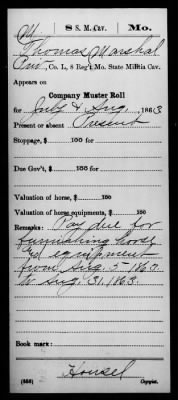 M | 8 S. M. Cav. | Mo.
Thomas Marshal
Pvt, Co. L, 8 Reg't Mo. State Militia Cav.
Appears on
Company Muster Roll
for July & Aug, 1863
Present or absent Present
Stoppage, $ 100 for
Due Gov't, $ 100 for
Valuation of horse, $ 100
Valuation of horse equipments, $ 100
Remarks: Pay due for
furnishing horse
and equipment
from Aug. 5 1863.
to Aug. 31. 1863.
Book mark:
Housel
(358) Copyist.